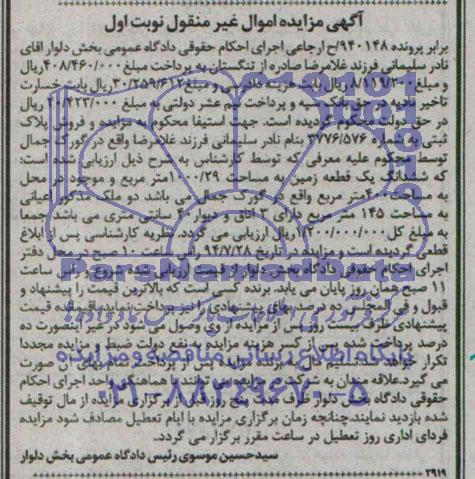 آگهی مزایده اموال غیر منقول نوبت اول
برابر پرونده ۹۴۰۱۴۸/ح ارجاعی اجرای احکام حقوقی دادگاه عمومی بخش دلوار اقای
نادر سلیمانی فرزند غلامرضا صادره از تنگستان به پرداخت مبلغ ۴۰۸/۴۶۰/۰۰۰ریال
و مبلغ ۸/۱۱۹/۲۰۰ ریال بابت هزینه دادرسی و مبلغ ۳۰/۲۵۹/۶۱۲ ریال بابت خسارت
تاخیر تادیه در حق بانک سپه و پرداخت نیم عشر دولتی به مبلغ ۲۰/۴۲۳/۰۰۰ ریال
در حق دولت محکوم گردیده است. جهت استیفا محکوم به مزایده و فروش پلاک
ثبتی به شماره ۳۷۷۶/۵۷۶ بنام نادر سلیمانی فرزند غلامرضا واقع در گورک جمال
توسط محکوم علیه معرفی که توسط کارشناس به شرح ذیل ارزیابی شده است:
که ششدانگ یک قطعه زمین به مساحت ۱۰۰۰/۲۹متر مربع و موجود در محل
به مساحت ۴۰۰متر مربع واقع در گورک جمال می باشد دو ملک مذکور اعیانی
به مساحت ۱۴۵ متر مربع دارای ۳ اتاق و دیوار ۲۰ سانتی متری می باشد جمعا
به مبلغ کل ۱/۲۰۰/۰۰۰/۰۰۰ریال ارزیابی می گردد. نظریه کارشناسی پس از ابلاغ
قطعی گردیده است و مزایده در تاریخ ۹۴/۷/۲۸ راس ساعت ۱۰ صبح در محل دفتر
اجرای احکام حقوقی دادگاه بخش دلوار از قیمت ارزیابی شده شروع و سر ساعت
۱۱ صبح همان روز پایان می یابد. برنده کسی است که بالاترین قیمت را پیشنهاد و
قبول و فی المجلس ده درصد بهای پیشنهادی را نیز پرداخت نماید باقیمانده قیمت
پیشنهادی ظرف بیست روز پس از مزایده از وی وصول می شود در غیر اینصورت ده
درصد پرداخت شده پس از کسر هزینه مزایده به نفع دولت ضبط و مزایده مجددا
تکرار خواهد شد. تسلیم مال به برنده مزایده پس از پرداخت تمام بهای آن صورت
می گیرد. علاقه مندان به شرکت در مزایده می توانند با هماهنگی واحد اجرای احکام
حقوقی دادگاه بخش دلوار ظرف مدت پنج روز قبل از برگزاری مزایده از مال توقیف
شده بازدید نمایند. چنانچه زمان برگزاری مزایده با ایام تعطیل مصادف شود مزایده
فردای اداری روز تعطیل در ساعت مقرر برگزار می گردد.
سیدحسین موسوی رئیس دادگاه عمومی بخش دلوار
۲۹۱۹
پایگاه اطلاع رسانی مناقصه و مزایده
۰۲۱-۸۸۳۴۹۶۷۰-۵